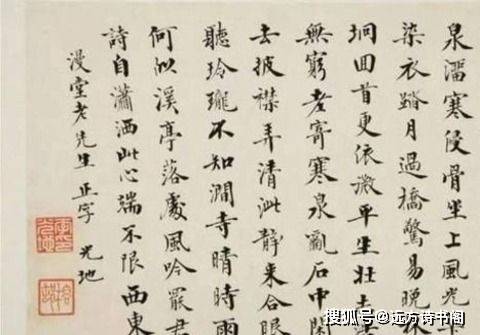 泉澑寒侵骨坐上風光
染衣踏月過橋驚易晚
坰回首更依微平生壯志
無窮老寄寒泉亂石中閒
去披襟弄清泚静来合眼
聽玲瓏不知澗寺晴時雨
何似溪亭落處風吟罷君
詩自瀟洒此心端不限西東
漫堂老先生 正字 光地
搜狐号@远方诗书阁